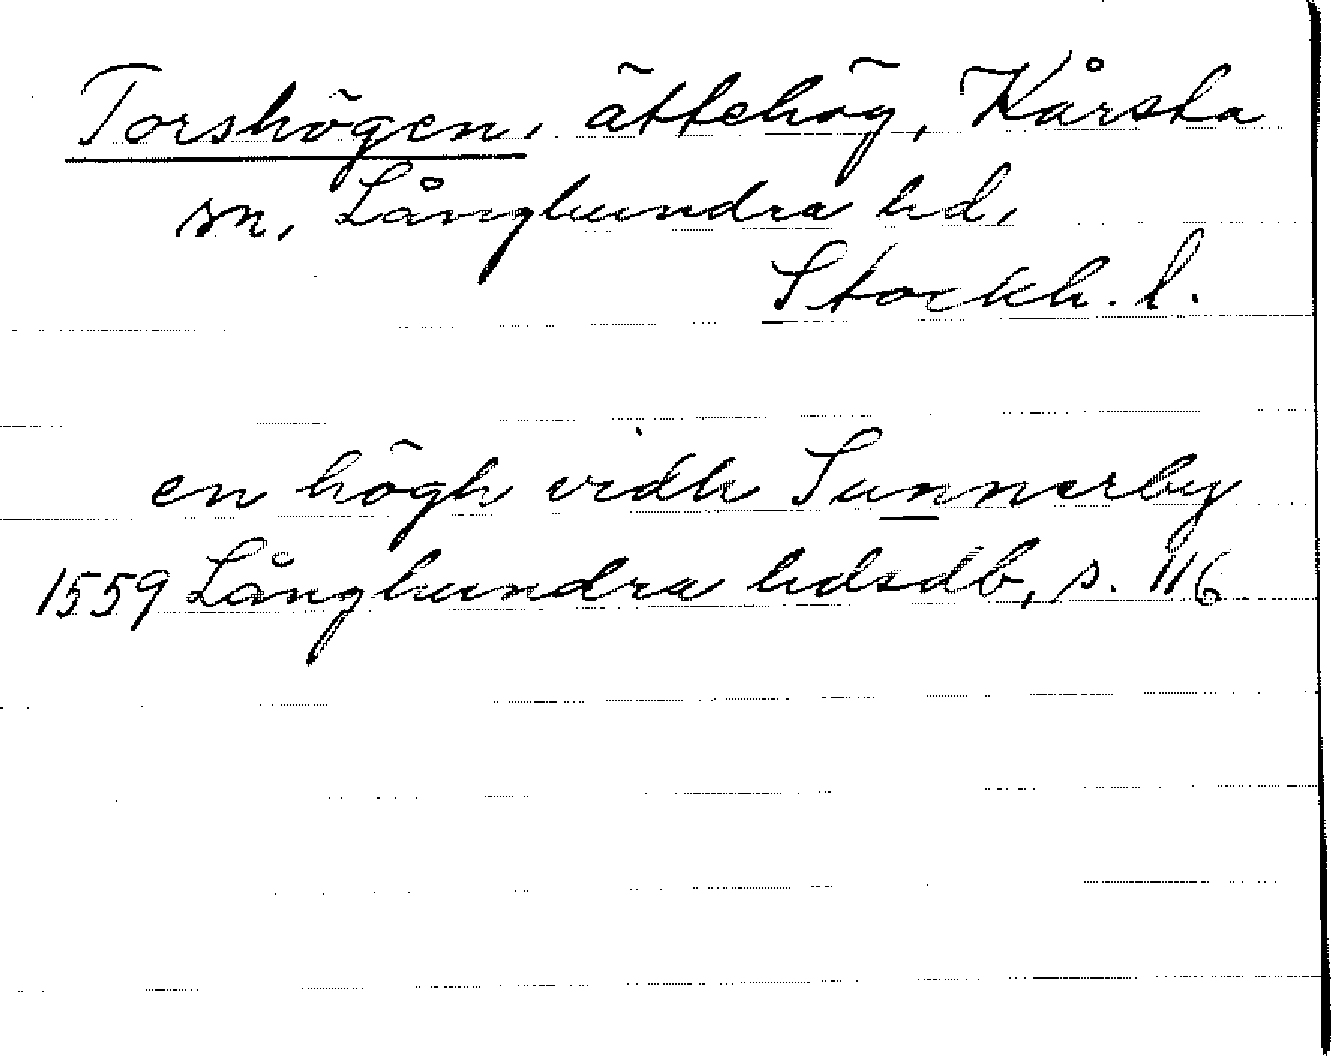 Torshögen, ättehög, Kårsta
sn, Långhundra hd,
Stockh. l.
en högh vidh Sunnerby
1559 Långhundra hdsdb, s. 116